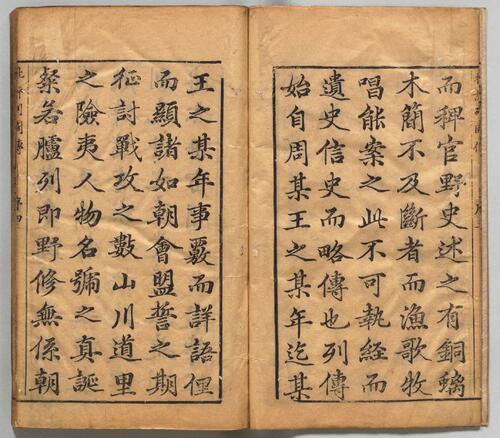 而稗官野史述之有銅螭
木簡不及斷者而漁歌牧
唱能案之此不可執經而
遺史信史而略傳也列傳
始自周某王之某年迄某
王之某年事覈而詳語俚
而顯諸如朝會盟誓之期
征討戰攻之數山川道里
之險夷人物名號之真誕
粲若臚列即野修無係朝
序四